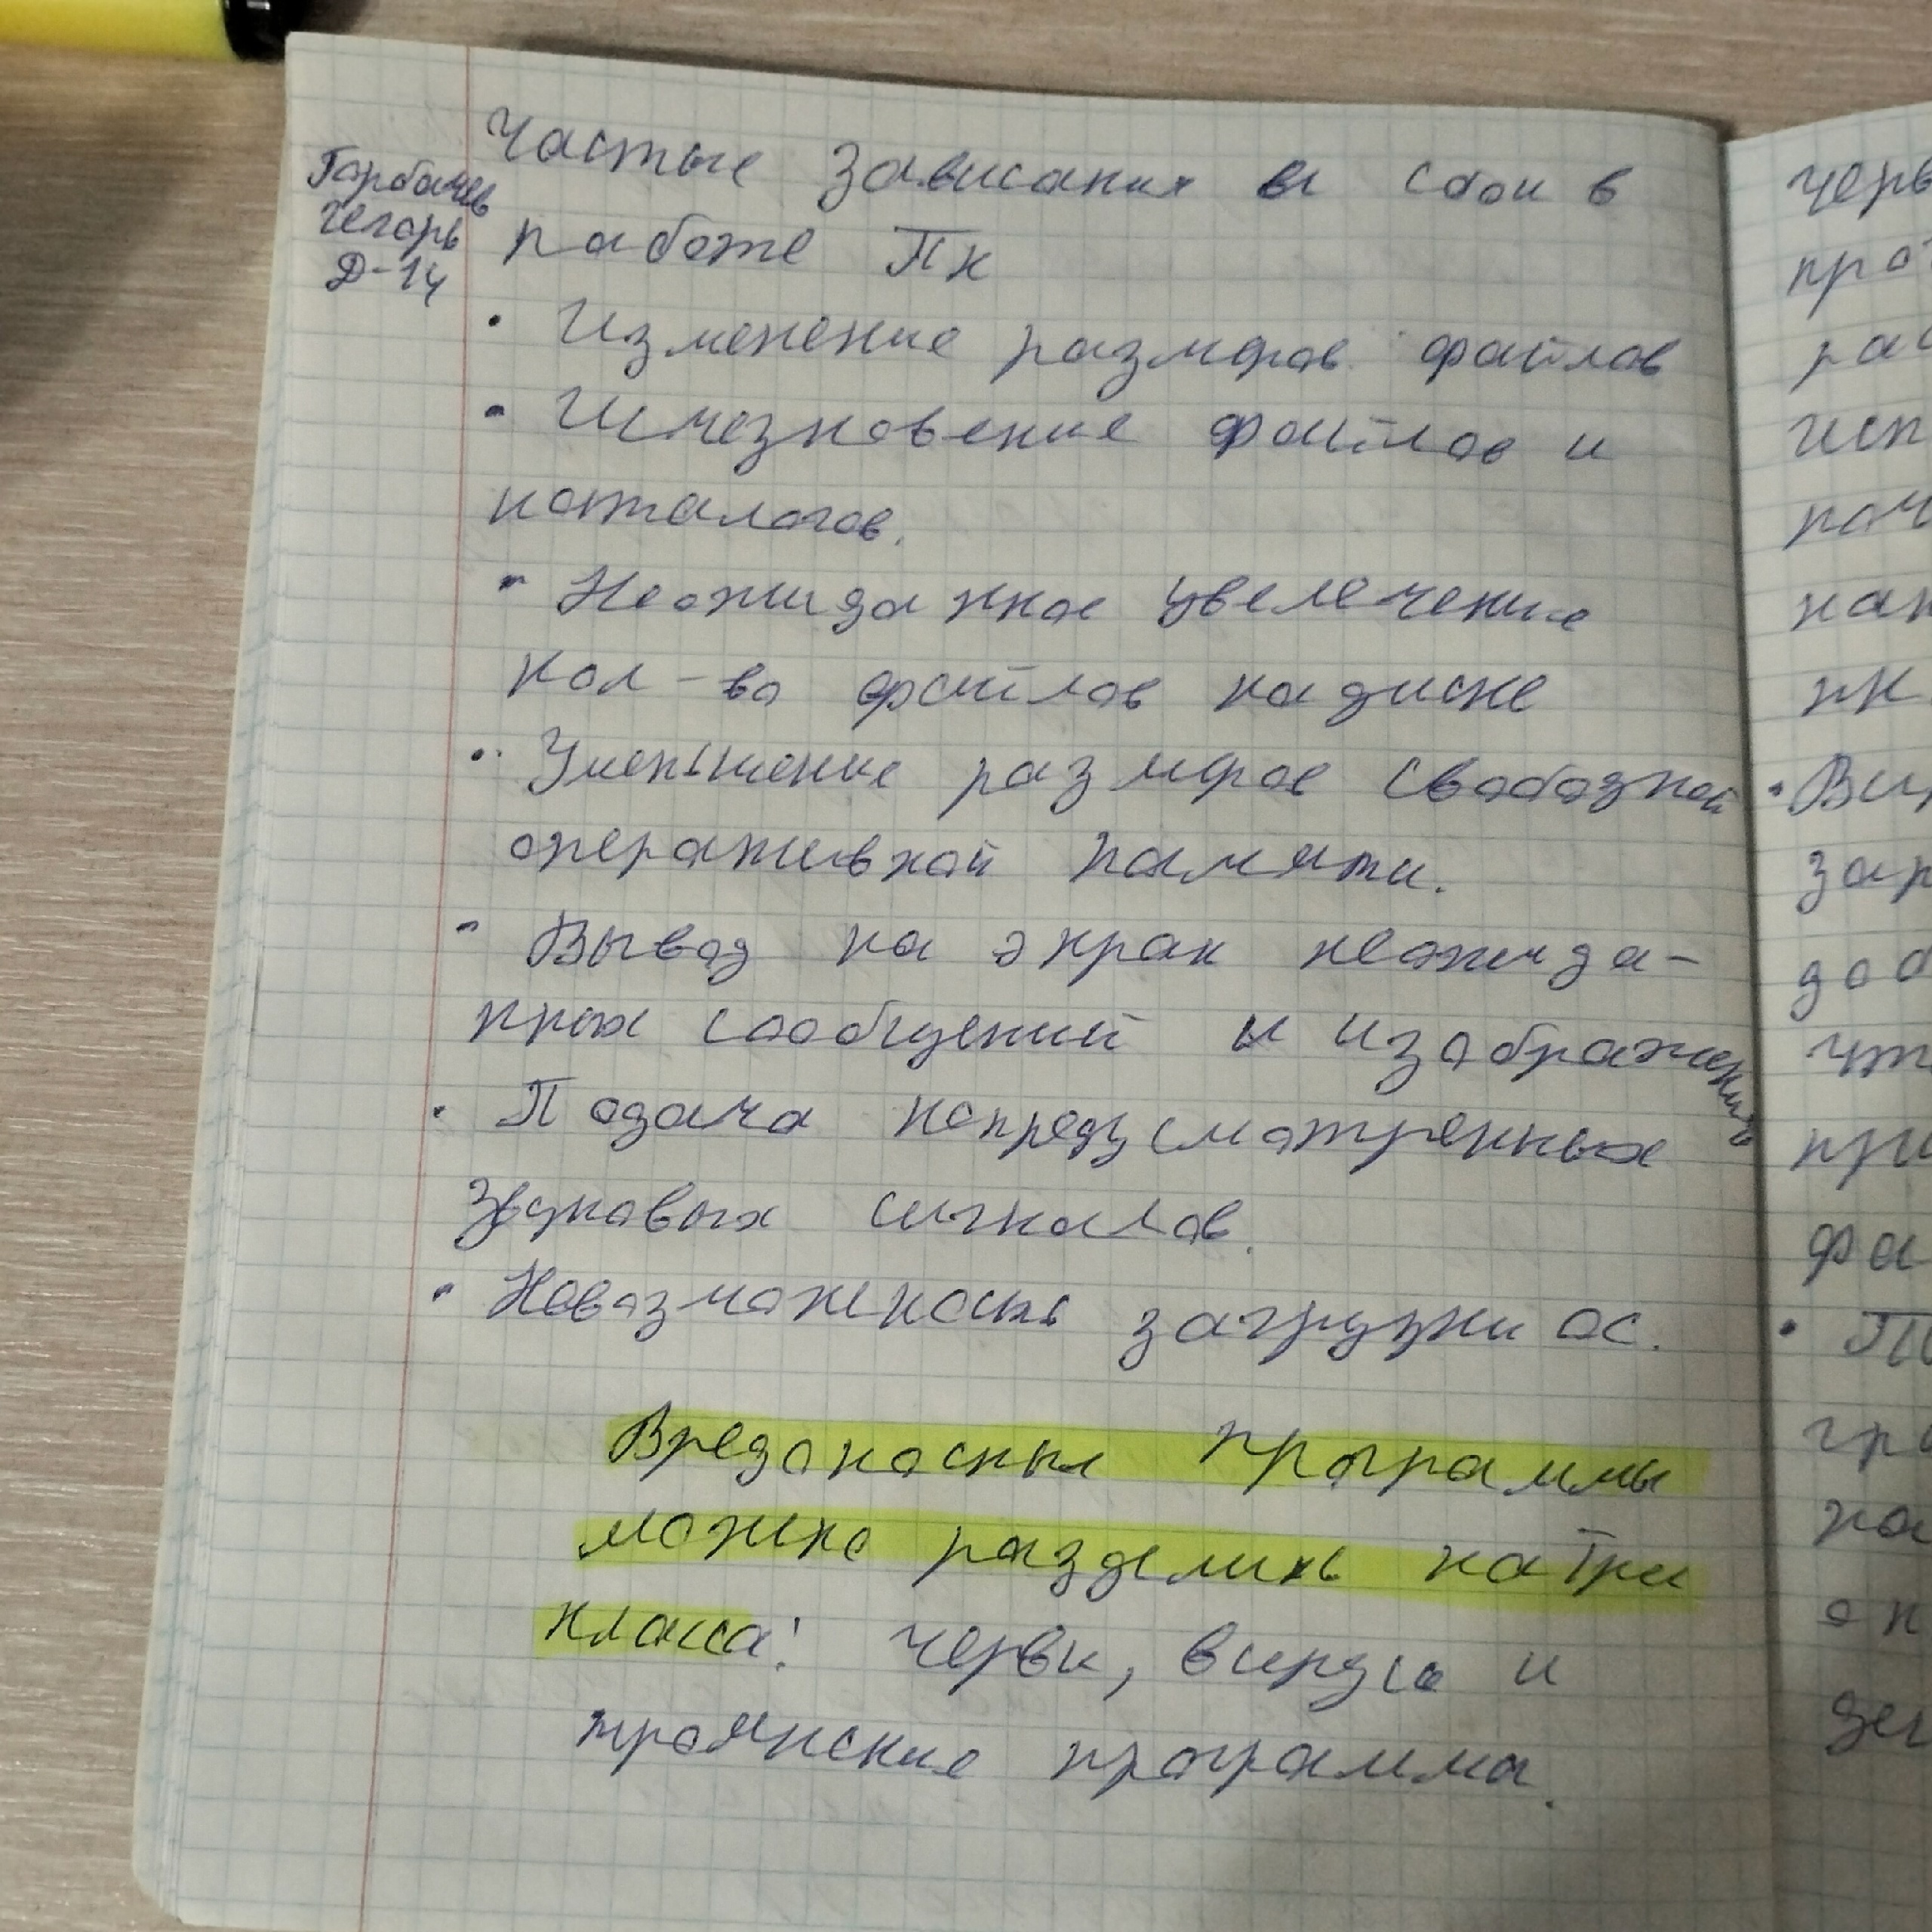 Частые зависания и сбои в
Горбачев
Егорь
Д-14
работе ПК
• Изменение размеров файлов
• Исчезновение файлов и
каталогов.
• Неожиданное увелечение
кол-во файлов на диске
• Уменьшение размеров свободной
оперативной памяти.
• Вывод на экран неожида-
нных сообщений и изображений
• Подача непредусмотренных
звуковых сигналов.
• Невозможность загрузки ОС.
Вредоносные программы
можно разделить на три
класса: черви, вирусы и
троянские программа.
черв
про
рас
исп
нак
пк
• Вир
зар
доб
чт
при
фа
• П
гра
на
он